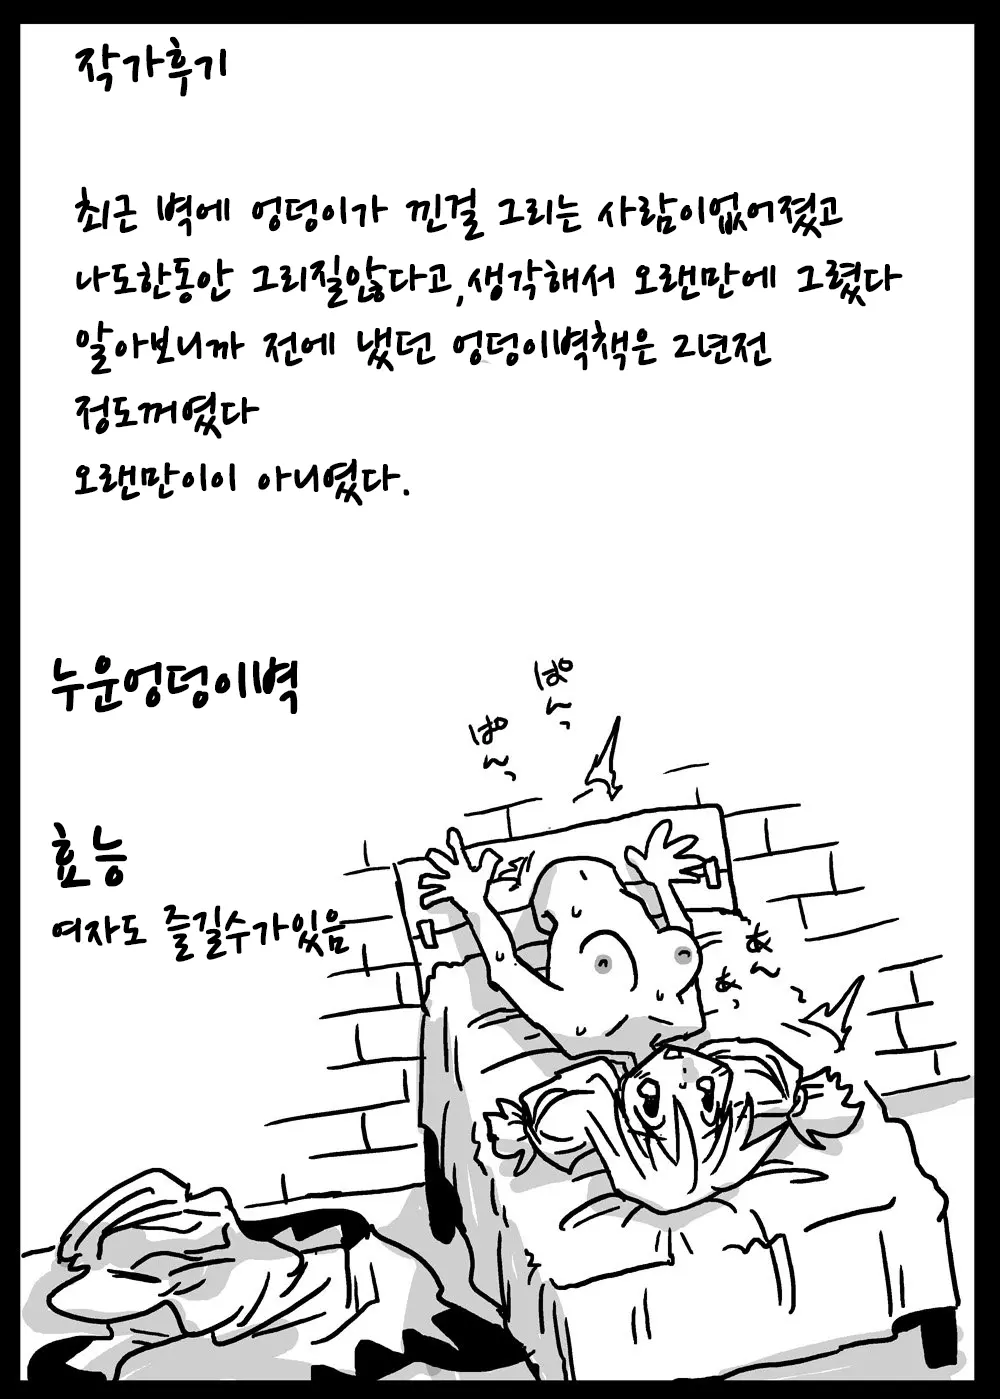 작가후기
최근 벽에 엉덩이가 낀걸 그리는 사람이없어졌고
나도한동안 그리질않다고,생각해서 오랜만에 그렸다
알아보니까 전에 냈던 엉덩이벽책은 2년전
정도꺼였다
오랜만이이 아니였다.
누운엉덩이벽
ぱん
ぱん
효능
여자도 즐길수가있음
あ~
あっ